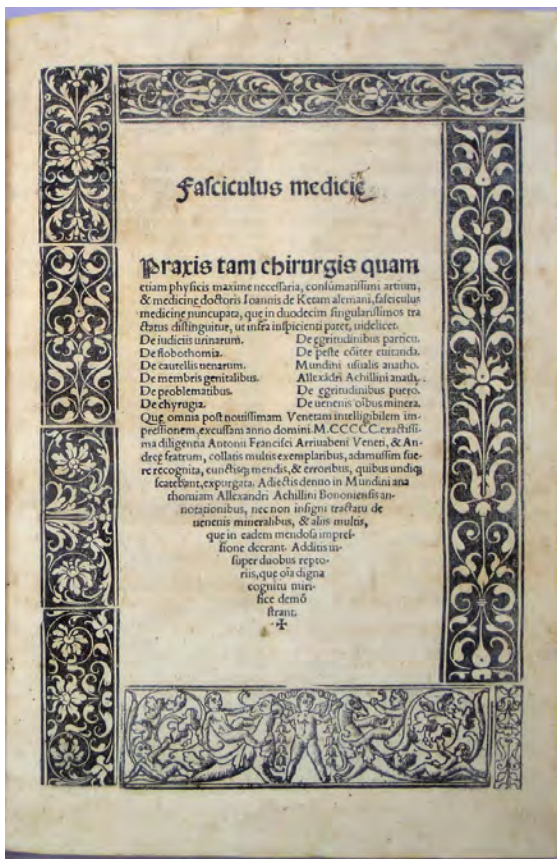 Fasciculus medicie
Praxis tam chirurgis quam
etiam physicis maxime necessaria, consũmatissimi artium,
& medicinę doctoris Ioannis de Ketam alemani, fasciculus
medicinę nuncupata, que in duodecim singularissimos tra
ctatus distinguitur, ut infra inspicienti patet, uidelicet.
De iudiciis urinarum. De egritudinibus particu.
De flobothomia. De peste cõiter euitanda.
De cautellis uenarum. Mundini usualis anatho.
De membris genitalibus. Allexãdri Achillini anath.
De problematibus. De egritudinibus puero.
De chyrugia. De uenenis oĩbus minera.
Quę omnia post nouissimam Venetam intelligibilem im-
pressionem, excussam anno domini. M.CCCCC. exactissi-
ma diligentia Antonii Francisci Arriuabeni Veneti, & An-
dreę fratrum, collatis multis exemplaribus, adamussim fue
re recognita, cunctisq; mendis, & erroribus, quibus undiq;
scatebant, expurgata. Adiectis denuo in Mundini ana
thomiam Allexandri Achillini Bononiensis an-
notationibus, nec non insigni tractatu de
uenenis mineralibus, & aliis multis,
que in eadem mendosa impres-
sione deerant. Additis in-
super duobus repto-
riis, que oĩa digna
cognitu miri-
fice demõ
strant.